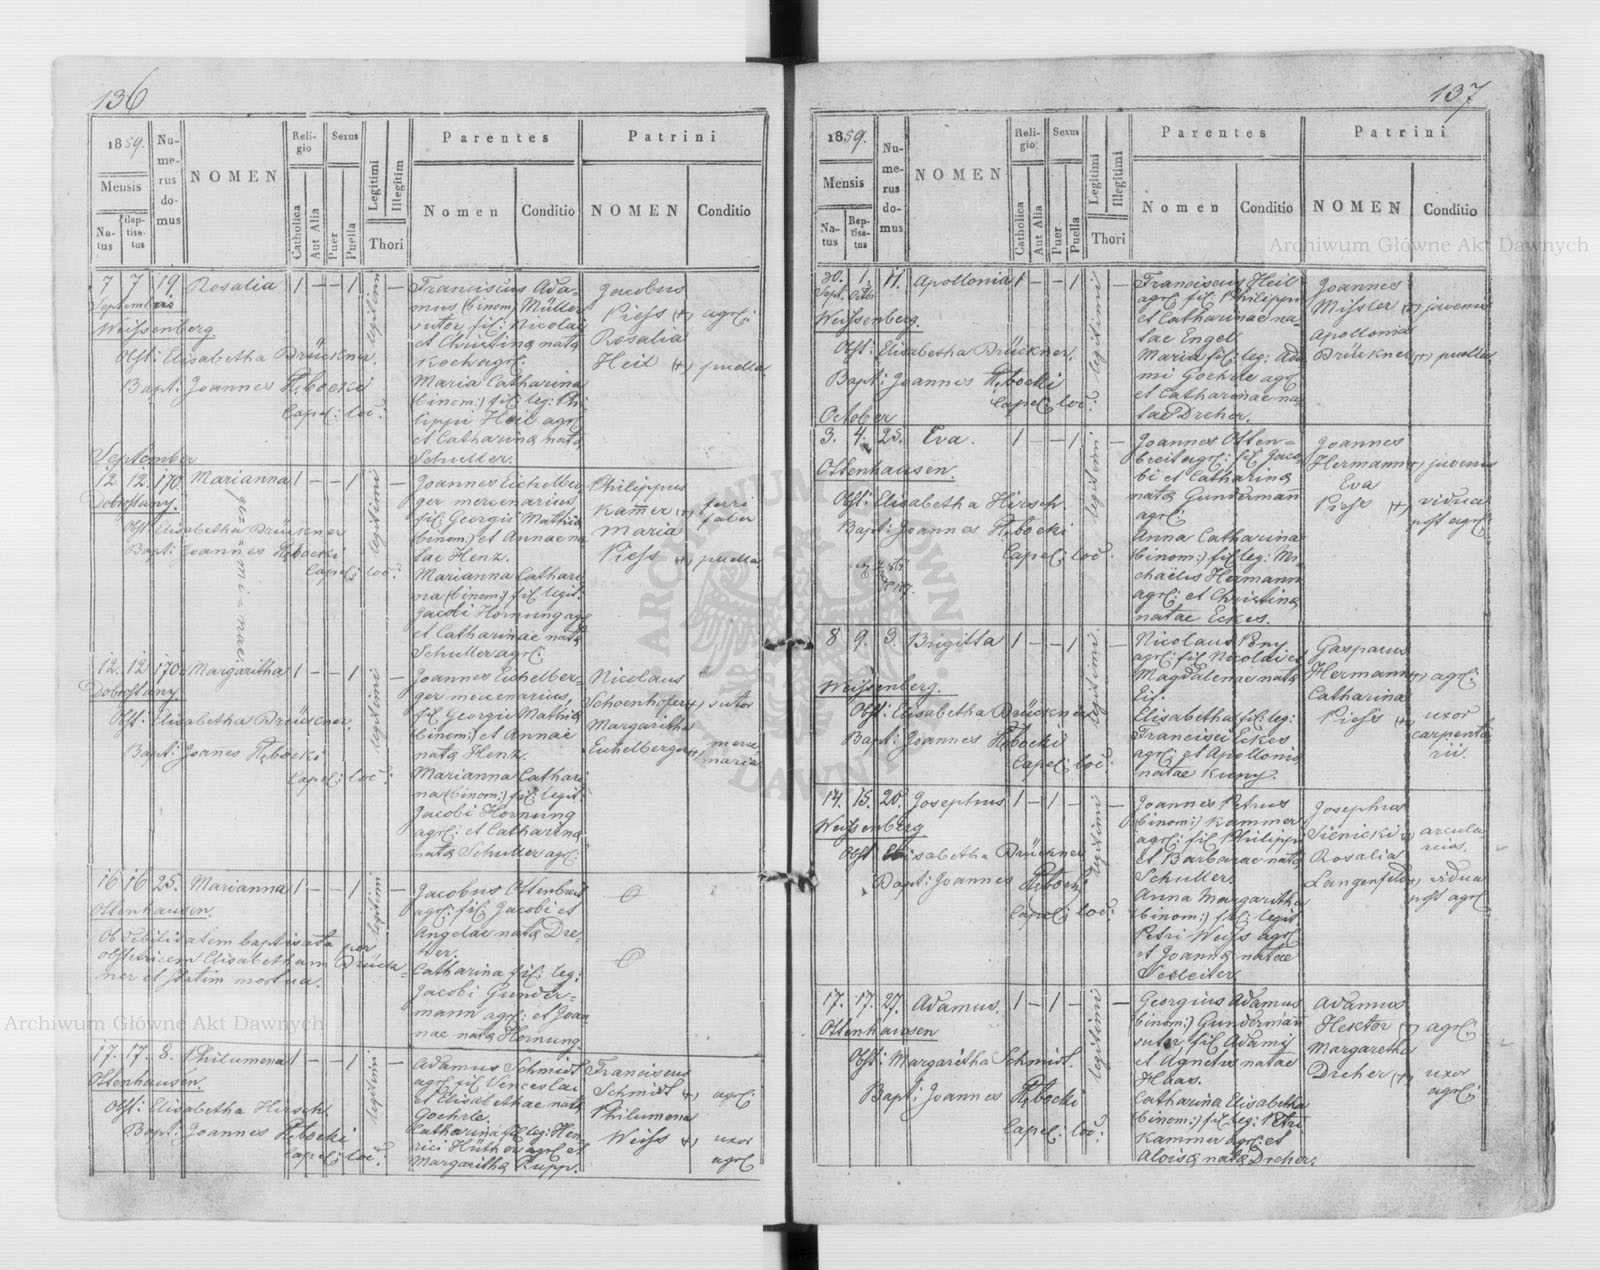 136
1859.
Mensis
Na-
tus
Bap-
tisa-
tus
Nu-
me-
rus
do-
mus
NOMEN
Reli-
gio
Catholica
Aut Alia
Sexus
Puer
Puella
Legitimi
Illegitim
Thori
Parentes
Nomen
Conditio
Patrini
NOMEN
Conditio
7 7 19 Rosalia 1 — — 1 legitimi —
Weissenberg
Obst: Elisabetha Drückner
Bapt: Joannes
Capel: loc:
Franciscus Ada-
mus (binom:) Müller
sutor, fil: Nicolai
et Christina nata
Koch agr:
Maria Catharina
(binom:) fil: leg: Phi-
lippi Heil agr:
et Catharina nata
Schuller.
Jacobus
Piess (+) agr:
Rosalia
Heil (+) puella
September
12 12 170. Marianna 1 — — 1 legitimi —
ge=mi=nae
Dobrostany.
Obst: Elisabetha Drückner
Bapt: Joannes
Capel: loc:
Joannes Eichelber-
ger mercenarius
fil: Georgii Mathia
(binom:) et Annae na
tae Henz.
Marianna Cathari
na (binom:) fil: legit:
Jacobi Hornung agr
et Catharinae nata
Schuller agr:
Philippus
Kamer (+) ferri
faber
Maria
Piess (+) puella
12. 12 170. Margaritha 1 — — 1 legitimi —
Dobrostany
Obst: Elisabetha Drückner
Bapt: Joanes
Capel: loc:
Joannes Eichelber-
ger mercenarius,
fil: Georgii Mathia
(binom:) et Annae
nata Henz.
Marianna Cathari
na (binom:) fil: legit:
Jacobi Hornung
agr: et Catharina
nata Schuller agr:
Nicolaus
Schoenhofer (+) sutor
Margaritha
Eichelberger (+) merce-
naria
16 16 25. Marianna 1 — — 1 legitimi —
Ottenhausen.
Ob debilitatem baptisata per
obstetricem Elisabetham Drück-
ner et statim mortua.
Jacobus Ottenbreit
agr: fil: Jacobi et
Angelae nata Dre-
her.
Catharina fil: leg:
Jacobi Gunder-
mann agr: et Joan-
nae nata Hornung.
17. 17. 8. Philumena 1 — — 1 legitimi —
Ottenhausen.
Obst: Elisabetha Hirsch.
Bapt: Joannes
Capel: loc:
Adamus Schmidt
agr: fil: Venceslai
et Elisabethae nata
Goehrle.
Catharina fil: leg: Hen-
rici Hüther agr: et
Margaritha Rupp.
Franciscus
Schmidt (+) agr:
Philumena
Weiss (+) uxor
agr:
137
1859.
Mensis
Na-
tus
Bap-
tisa-
tus
Nu-
me-
rus
do-
mus
NOMEN
Reli-
gio
Catholica
Aut Alia
Sexus
Puer
Puella
Legitimi
Illegitimi
Thori
Parentes
Nomen
Conditio
Patrini
NOMEN
Conditio
30. 1. 11. Apollonia 1 — — 1 legitimi —
Sept. Octob
Weissenberg.
Obst: Elisabetha Drückner.
Bapt: Joannes
Capel: loc:
Franciscus Heil
agr: fil: Philippi
et Catharinae na-
tae Engel
Maria fil: leg: Ada
mi Goehrle agr:
et Catharinae na-
tae Dreher.
Joannes
Missler (+) juvenis
Apollonia
Drückner (+) puella
October
3. 4. 25. Eva. 1 — — 1 legitimi —
Ottenhausen.
Obst: Elisabetha Hirsch.
Bapt: Joannes
Capel: loc:
Joannes Otten-
breit agr: fil: Jaco-
bi et Catharina
nata Gunderman
agr:
Anna Catharina
(binom:) fil: leg: Mi-
chaëlis Hermann
agr: et Christina
natae Eckes.
Joannes
Hermann (+) juvenis
Eva
Piess (+) vidua
post agr:
8 9. 3. Brigitta 1 — — 1 legitimi —
Weissenberg.
Obst: Elisabetha Drückner
Bapt: Joannes
Capel: loc:
Nicolaus Pony
agr: fil: Nicolai et
Magdalenae nata
Elisabetha fil: leg:
Francisci Eckes
agr: et Apollonia
natae Kuny.
Gasparus
Hermann (+) agr:
Catharina
Piess (+) uxor
carpenta-
rii.
14. 15. 20. Josephus 1 — 1 — legitimi —
Weissenberg.
Obst: Elisabetha Drückner
Bapt: Joannes
Capel: loc:
Joannes Petrus
(binom:) Kammer
agr: fil: Philippi
et Barbarae nata
Schuller.
Anna Margaritha
(binom:) fil: legit
Petri Weiss agr:
et Joanna natae
Josephus
Sienicki (+) arcula
rius.
Rosalia
Langenfeld (+) vidua
post agr:
17. 17. 27. Adamus. 1 — 1 — legitimi —
Ottenhausen
Obst: Margaretha Schmidt.
Bapt: Joannes
Capel: loc:
Georgius Adamus
(binom:) Gundermann
sutor fil: Adami
et Agnetis natae
Haas.
Catharina Elisabetha
(binom:) fil: leg: Petri
Kammer agr: et
Aloisa nata Dreher.
Adamus
Hektor (+) agr:
Margaretha
Dreher (+) uxor
agr:
Archiwum Główne Akt Dawnych
Archiwum Główne Akt Dawnych